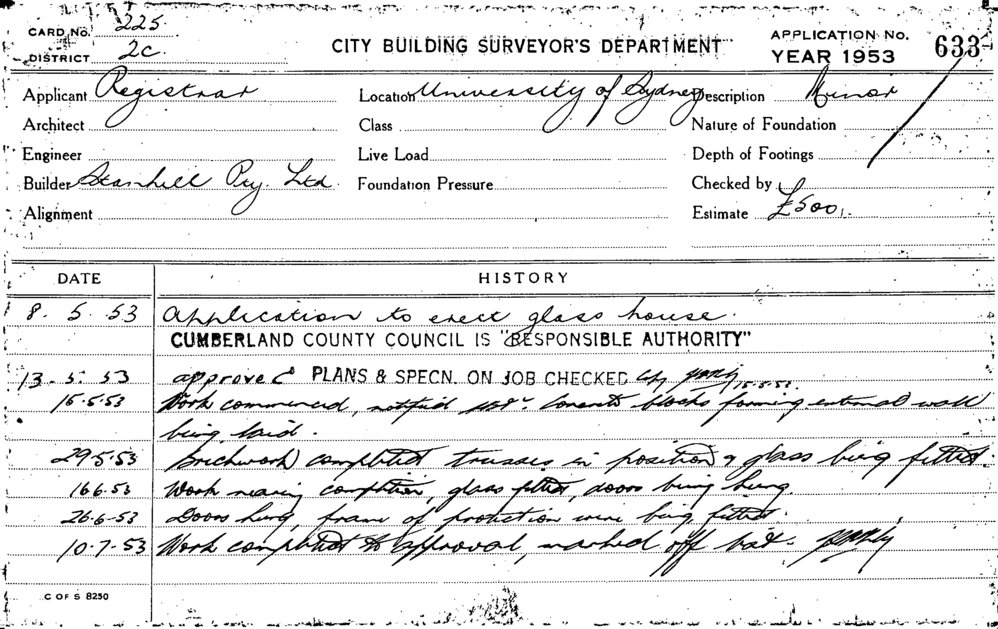 CARD No. 225
DISTRICT 2C.
CITY BUILDING SURVEYOR'S DEPARTMENT
APPLICATION No. 633
YEAR 1953
Applicant Registrar
Location University of Sydney
Description Minor
Architect
Class
Nature of Foundation
Engineer
Live Load
Depth of Footings
Builder Stanhill Pty. Ltd.
Foundation Pressure
Checked by
Alignment
Estimate £500.
DATE
HISTORY
8. 5. 53 Application to erect glass house.
CUMBERLAND COUNTY COUNCIL IS "RESPONSIBLE AUTHORITY"
13. 5. 53 approved PLANS & SPECN. ON JOB CHECKED by 15.5.53.
15.5.53 Work commenced, notified Concrete blocks forming external wall
being laid.
29.5.53 Brickwork completed trusses in position & glass being fitted.
16.6.53 Work nearing completion, glass fitted, doors being hung.
26-6-53 Doors hung, frame of protection wire being fitted.
10.7.53 Work completed to approval, marked off
C OF S 8250